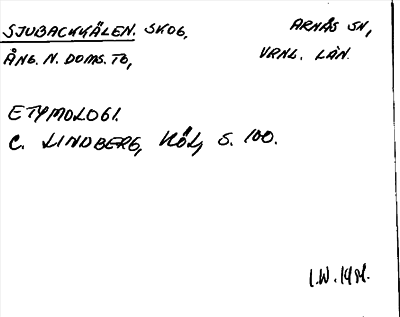 SJUBACKKÄLEN. SKOG, ARNÄS SN,
ÅNG. N. DOMS. TG, VRNL. LÄN.
ETYMOLOGI.
C. LINDBERG, KÖL, S. 100.
I.W.